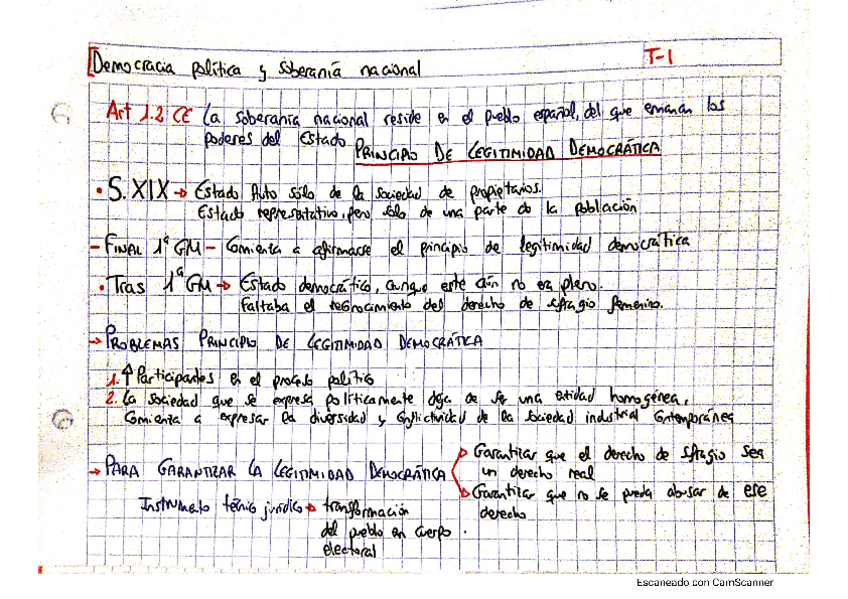 Democracia política y soberanía nacional
T-1
Art 1.2 CE La soberanía nacional reside en el pueblo español, del que emanan los
poderes del Estado
PRINCIPIO DE LEGITIMIDAD DEMOCRÁTICA
• S. XIX → Estado fruto sólo de la sociedad de propietarios.
Estado representativo, pero sólo de una parte de la población
- FINAL 1ª GM - Comienza a afirmarse el principio de legitimidad democrática
• Tras 1ª GM → Estado democrático, aunque este aún no era pleno.
Faltaba el reconocimiento del derecho de sufragio femenino.
→ PROBLEMAS PRINCIPIO DE LEGITIMIDAD DEMOCRÁTICA
1. ↑ Participantes en el proceso político
2. La sociedad que se expresa políticamente deja de ser una entidad homogénea.
Comienza a expresar la diversidad y conflictividad de la sociedad industrial contemporánea
→ PARA GARANTIZAR LA LEGITIMIDAD DEMOCRÁTICA
Garantizar que el derecho de sufragio sea
un derecho real
Garantizar que no se pueda abusar de ese
derecho
Instrumento técnico jurídico → transformación
del pueblo en cuerpo
electoral
Escaneado con CamScanner